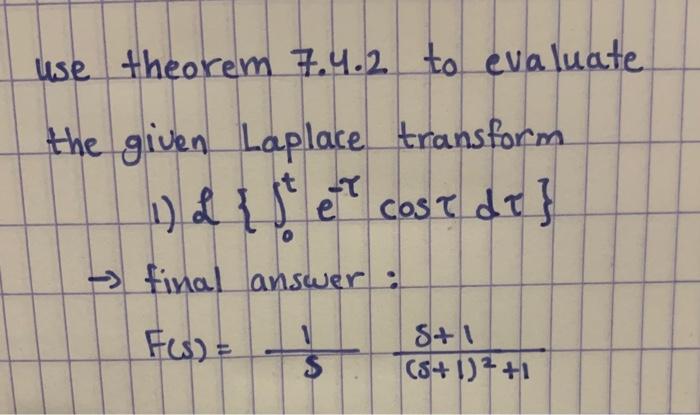 use theorem 7.4.2 to evaluate
the given Laplace transform
1) ℒ { ∫₀ᵗ e^-τ cos τ dτ }
→ final answer :
F(s) = 1/s (s+1)/((s+1)²+1)